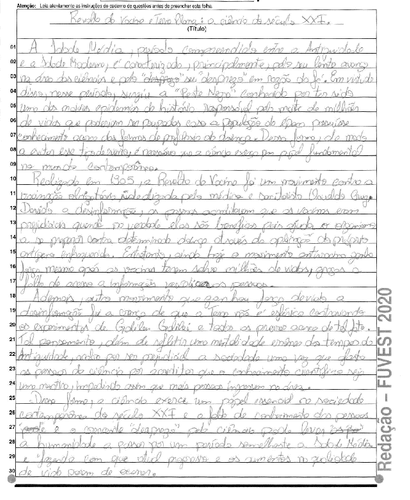 Atenção: Leia atentamente as instruções do caderno de questões antes de preencher esta folha.
Revolta da Vacina e Terra Plana: a ciência do século XXI.
(Título)
01 A Idade Média, período compreendido entre a Antiguidade
02 e a Idade Moderna, é caracterizada, principalmente, pelo seu lento avanço
03 na área das ciências e pelo seu desprezo em razão da fé. Em virtude
04 disso, nesse período, surgiu a "Peste Negra" conhecida por ter sido
05 uma das maiores epidemias da história responsável pela morte de milhões
06 de vidas que poderiam ser poupadas caso a população da época tivesse
07 conhecimento acerca das formas de profilaxia da doença. Dessa forma, de modo
08 a evitar esse fundamental
09 no mundo contemporâneo.
10 Realizada em 1905, a Revolta da Vacina foi um movimento contra a
11 vacinação obrigatória pelo médico e sanitarista Oswaldo Cruz.
12 Devido a desinformação, as pessoas acreditavam que as vacinas eram
13 prejudiciais quando na verdade elas são benéficas pois ajuda o organismo
14 a se preparar contra determinada doença através da aplicação do próprio
15 antígeno enfraquecido. Entretanto, ainda hoje o movimento antivacina ganha
16 força mesmo após as vacinas terem salvo milhões de vidas graças a
17 falta de acesso a informação pessoas.
18 Ademais, outro movimento que ganhou força devido a
19 desinformação foi a crença de que a Terra não é esférica contrariando
20 os experimentos de Galileu Galilei e todas as provas acerca de tal fato.
21 Tal pensamento, além de refletir uma mentalidade dos tempos da
22 Antiguidade, acaba por ser prejudicial a sociedade uma vez que afasta
23 as pessoas da ciência por acreditar que o conhecimento científico seja
24 uma mentira, impedindo assim que mais pessoas ingressem na área.
25 Dessa forma, a ciência exerce um papel essencial na sociedade
26 contemporânea do século XXI e a falta de conhecimento das pessoas
27 e o crescente "desprezo" pela ciência pode levar
28 a humanidade a passar por um período semelhante a Idade Média
29 e fazendo com que atual progresso e os aumentos na qualidade
30 de vida parem de crescer.
Redação – FUVEST 2020